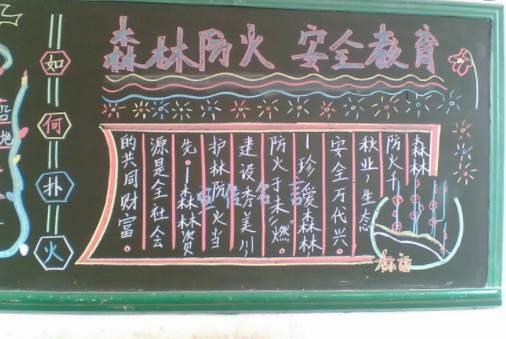 森林防火 安全教育
如
何
扑
火
森林
防火千
秋业,生态
安全万代兴。
—珍爱森林
防火于未燃。
建设秀美川,
护林防火当
先。—森林资
源是全社会
的共同财富。
标语